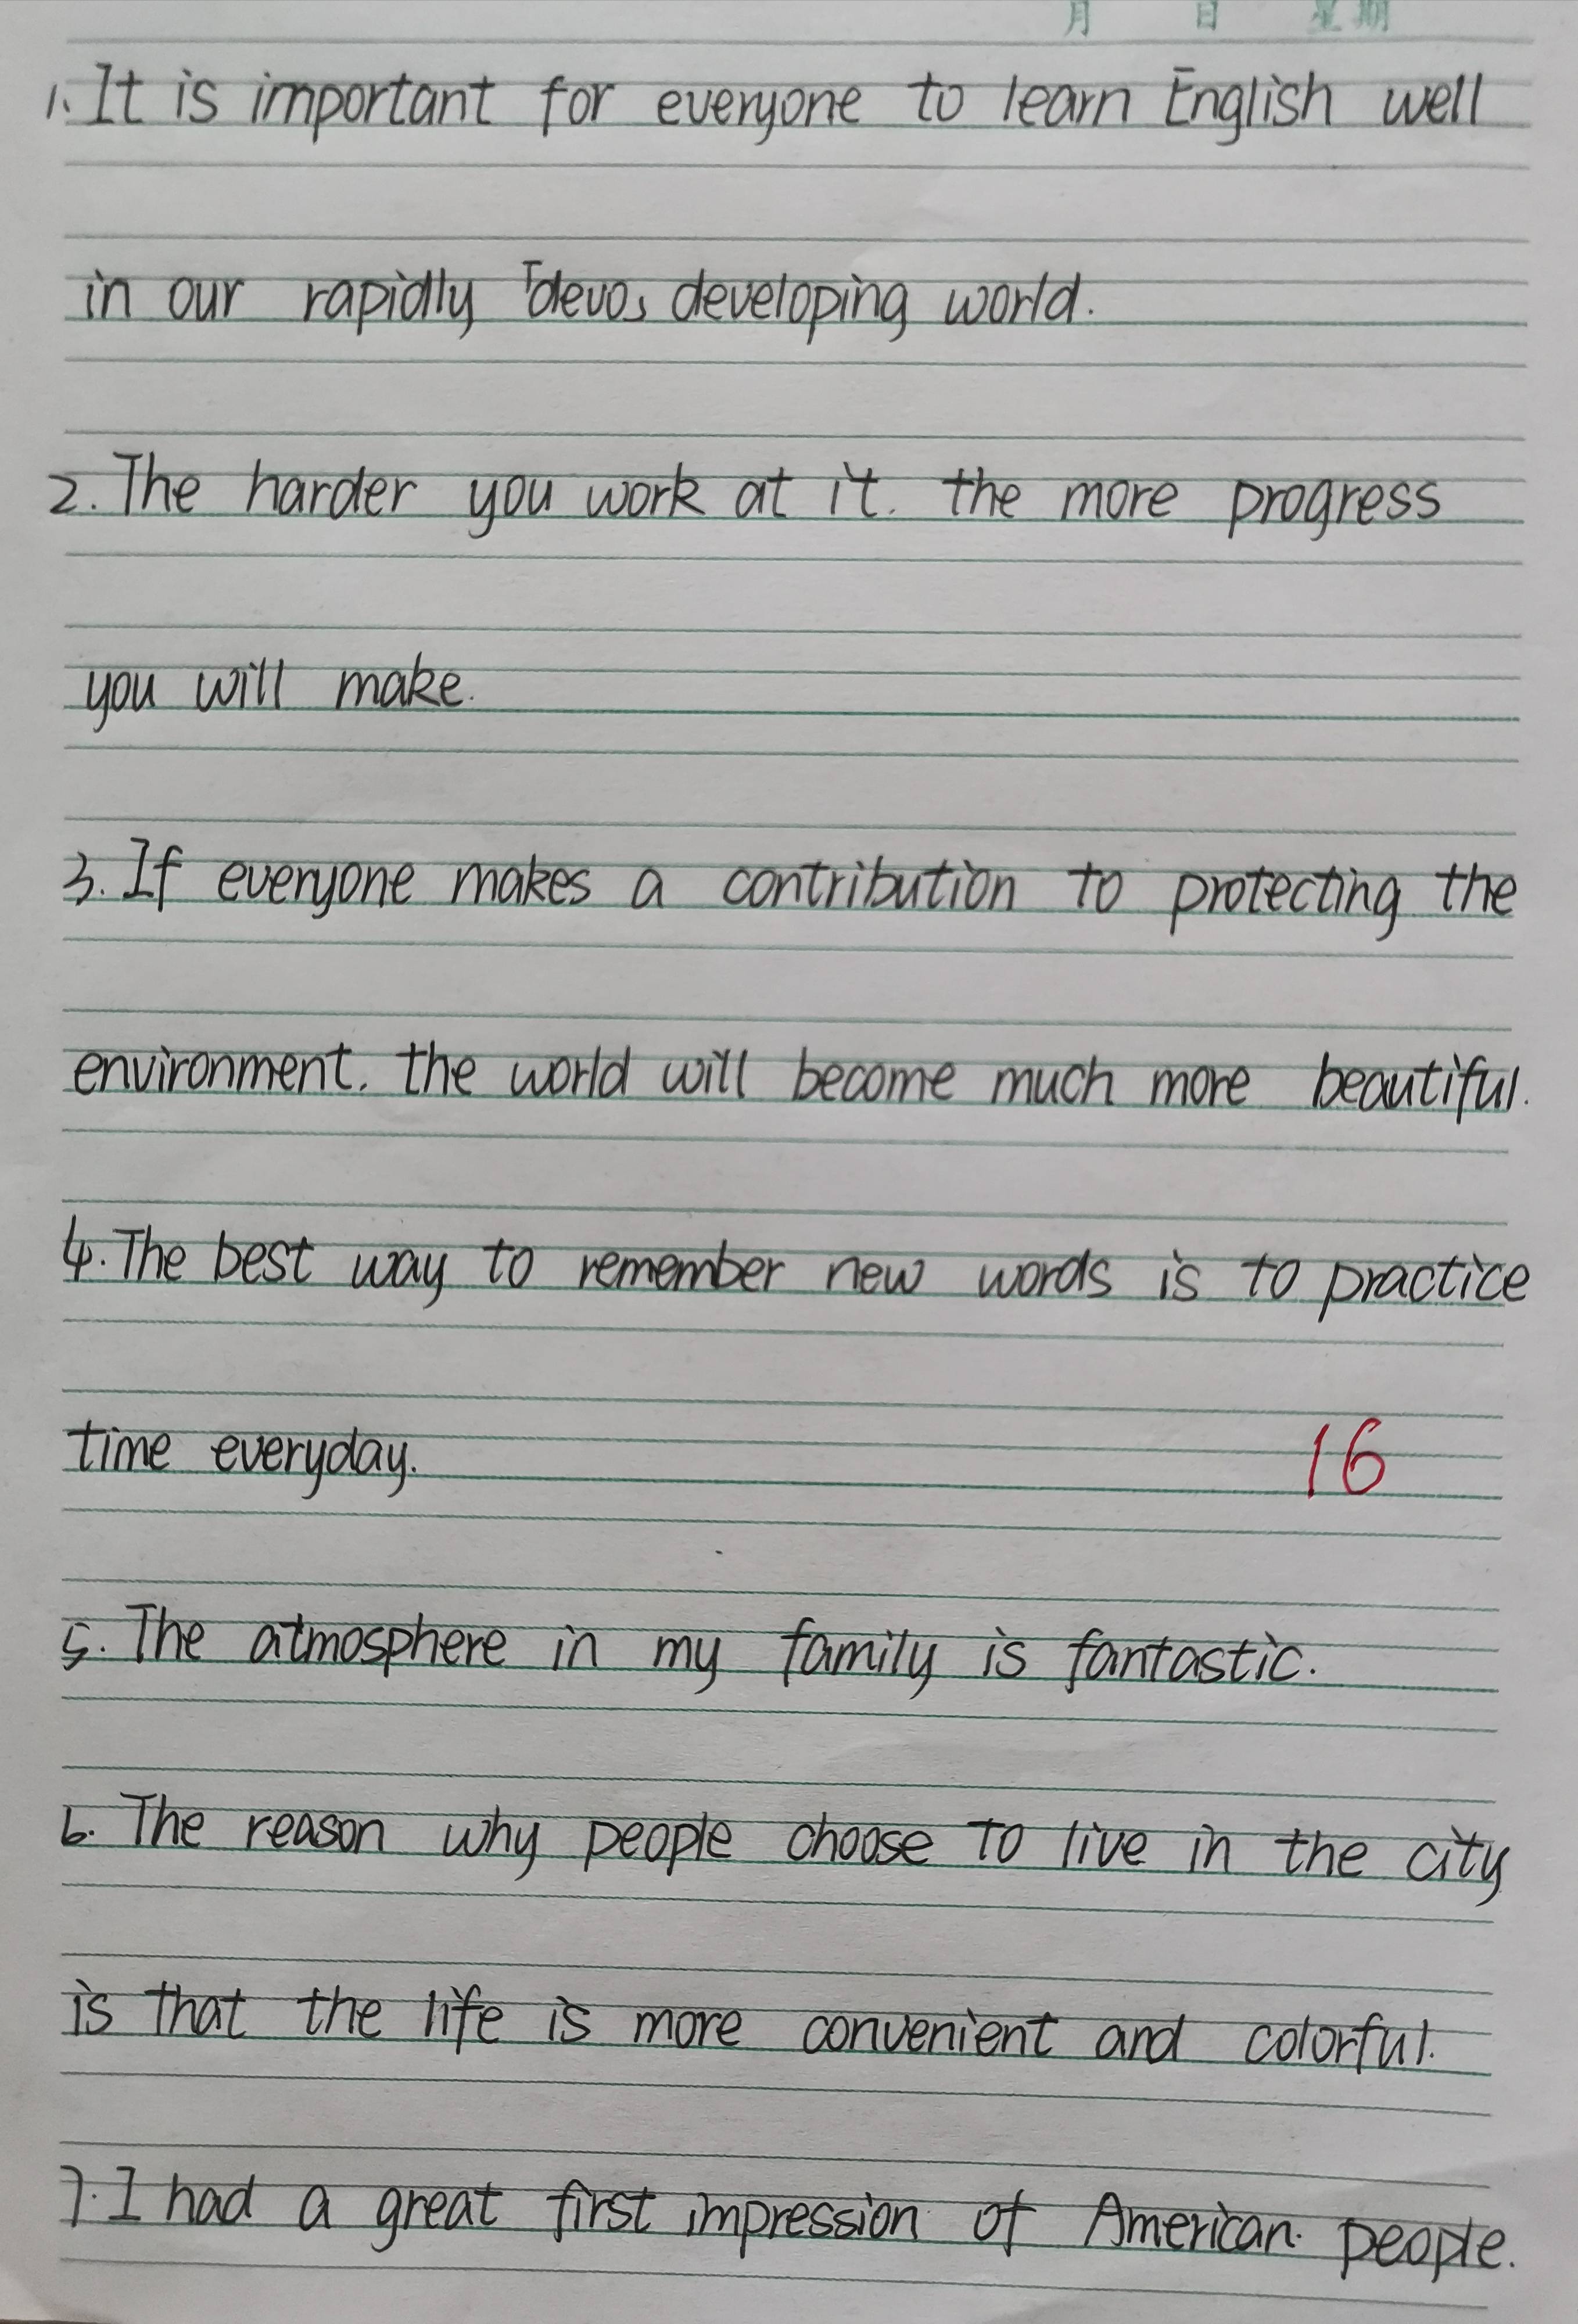 月 日 星期
1. It is important for everyone to learn English well
in our rapidly 「devo」 developing world.
2. The harder you work at it. the more progress
you will make.
3. If everyone makes a contribution to protecting the
environment. the world will become much more beautiful.
4. The best way to remember new words is to practice
time everyday.
16
5. The atmosphere in my family is fantastic.
6. The reason why people choose to live in the city
is that the life is more convenient and colorful.
7. I had a great first impression of American people.